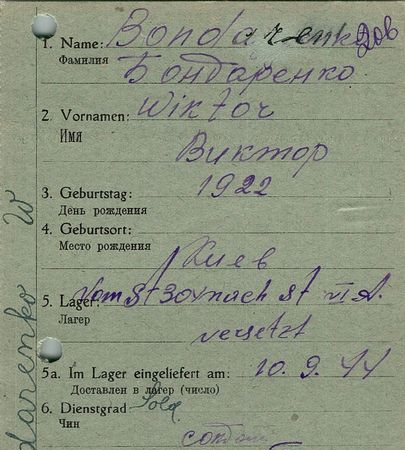 1. Name: Bondarenko
Фамилия Бондаренко
2. Vornamen: Wiktor
Имя Виктор
3. Geburtstag: 1922
День рождения
4. Geburtsort:
Место рождения Киев
5. Lager: Vom St 304 nach St VI A.
Лагер versetzt
5a. Im Lager eingeliefert am: 10. 9. 44
Доставлен в лагер (число)
6. Dienstgrad Sold
Чин солдат
darenko W